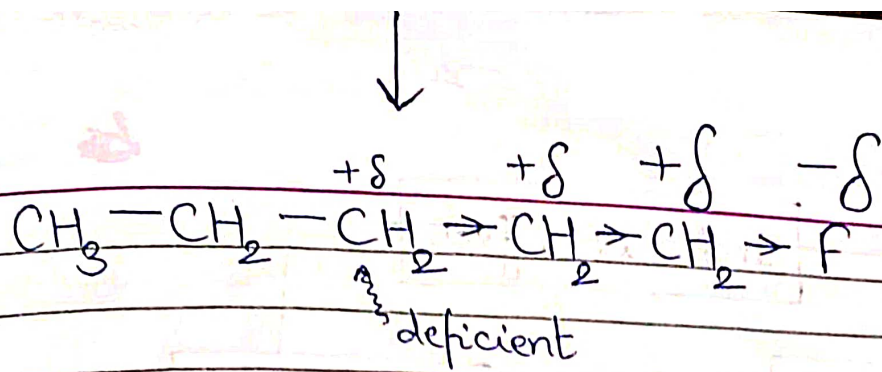 +δ +δ +δ -δ
CH₃ — CH₂ — CH₂ → CH₂ → CH₂ → F
deficient